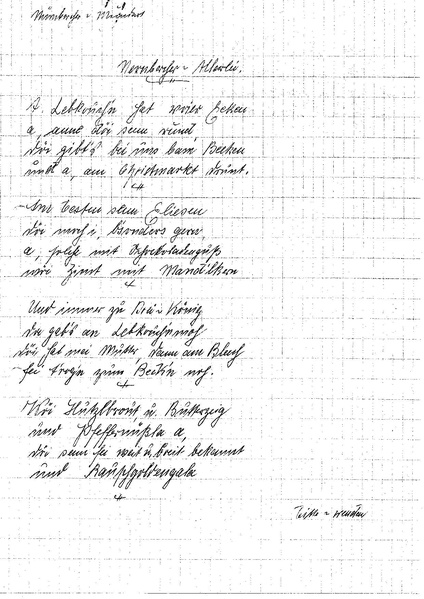 Nürnberger - Mundart
Nernbercher - Allerlei.
A Lebkoung'n hat vier Ecken
a, annr döi senn rund,
döi gibt's bei uns bam Becken
und a, am Christmarkt drunt.
Am besten senn Elisen
döi moch i, b'sonders gern,
a, solche mit Schokoladenguß
wöi Zimt mit Mandlkern
Und immer zu Drei-König
da geb's an Lebkoung'n noh
döi hat mei Mutter, dann am Blech
zum Beck'n noh.
Köi Hutzlbrout, u. Butterzeig
und Pfeffernüßla a,
döi senn fei weit u. breit bekannt
und Rauschgoldengala
Bitte - wenden